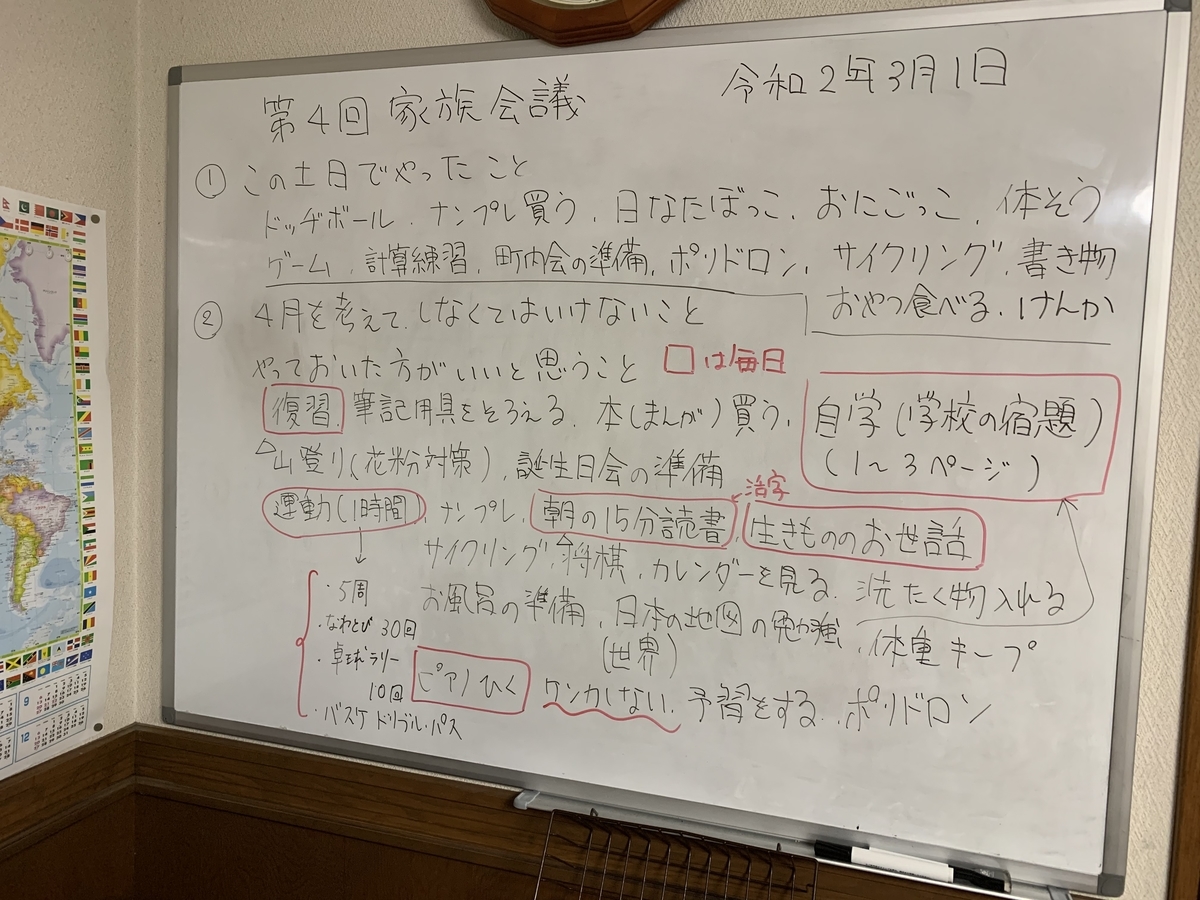 第4回 家族会議
令和2年3月1日
① この土日でやったこと
ドッヂボール、ナンプレ買う、日なたぼっこ、おにごっこ、体そう
ゲーム、計算練習、町内会の準備、ポリドロン、サイクリング、書き物
おやつ食べる、けんか
② 4月を考えて、しなくてはいけないこと
やっておいた方がいいと思うこと
□は毎日
復習、筆記用具をそろえる、本(まんが)買う、
自学(学校の宿題)
(1〜3ページ)
△山登り(花粉対策)、誕生日会の準備
活字
運動(1時間)、ナンプレ、朝の15分読書、生きもののお世話
サイクリング、将棋、カレンダーを見る、洗たく物入れる
お風呂の準備、日本の地図の勉強、体重キープ
(世界)
ピアノひく ケンカしない、予習をする、ポリドロン
・5周
・なわとび 30回
・卓球ラリー
10回
・バスケ ドリブル・パス
9
12